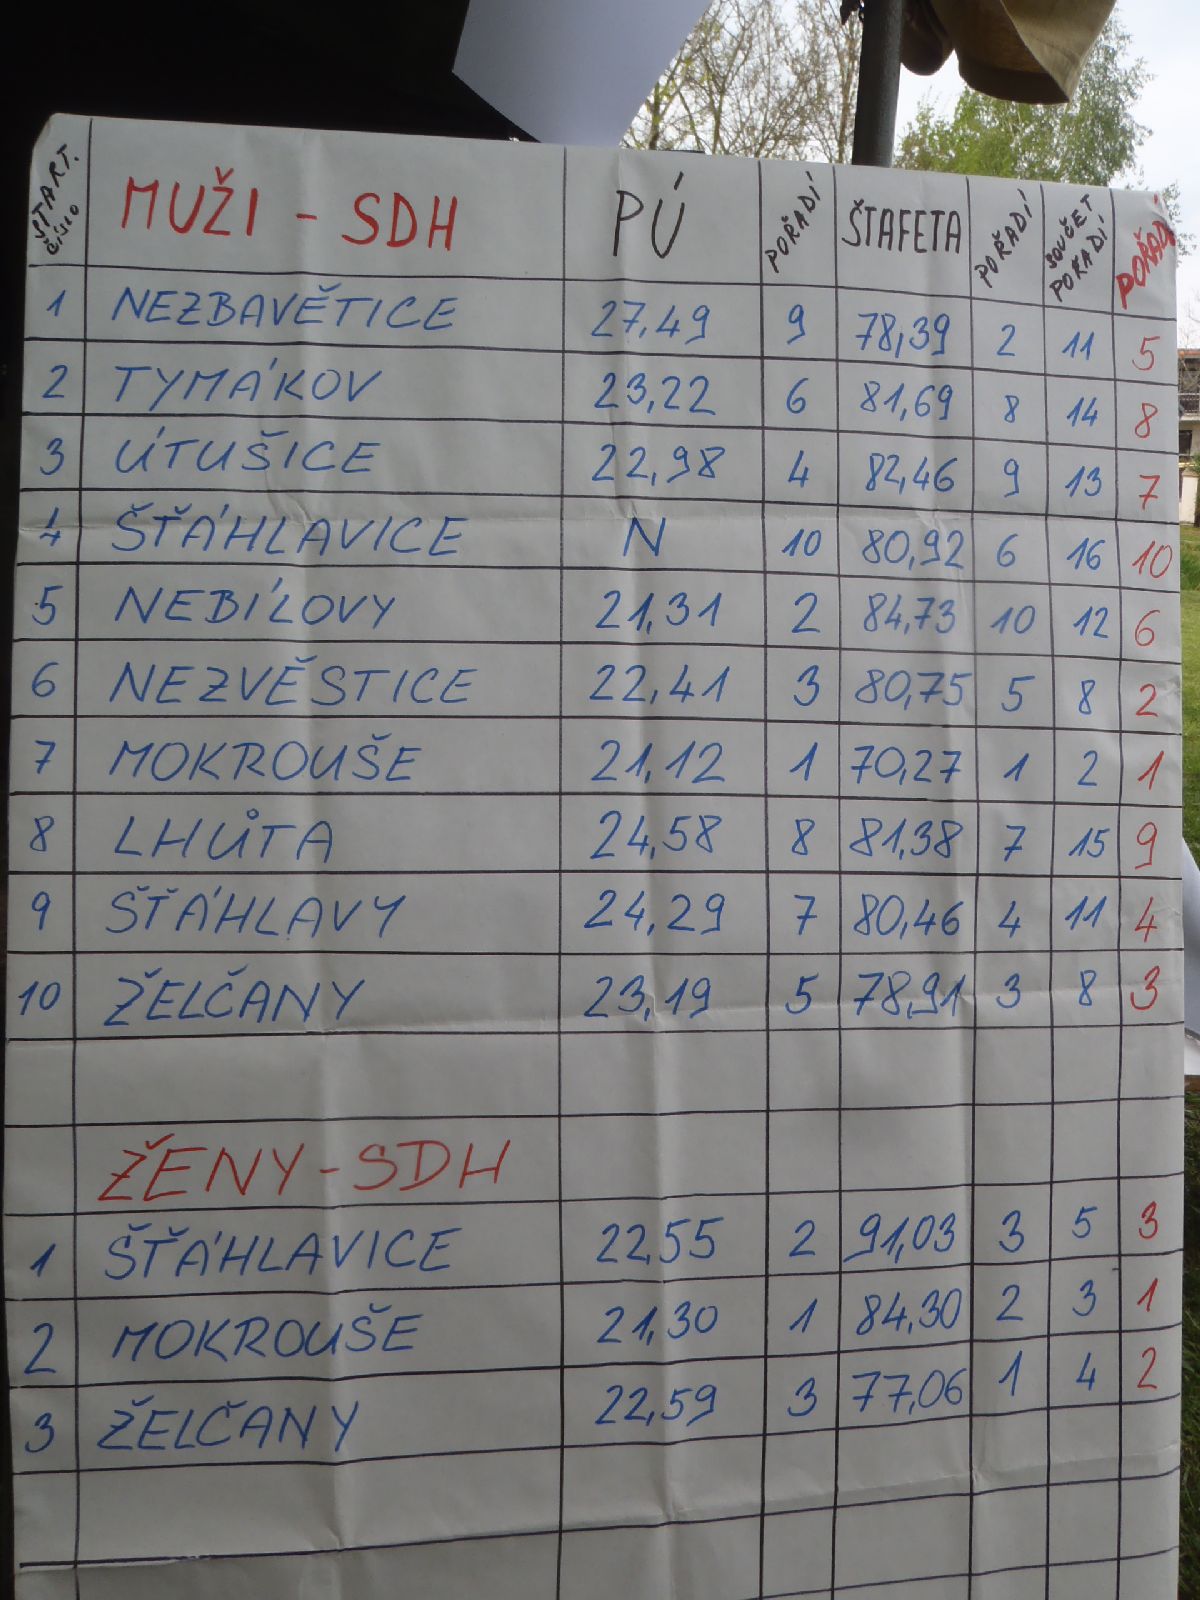 START. ČÍSLO MUŽI - SDH PÚ POŘADÍ ŠTAFETA POŘADÍ SOUČET POŘADÍ POŘADÍ
1 NEZBAVĚTICE 27,49 9 78,39 2 11 5
2 TYMÁKOV 23,22 6 81,69 8 14 8
3 ÚTUŠICE 22,98 4 82,46 9 13 7
4 ŠŤÁHLAVICE N 10 80,92 6 16 10
5 NEBÍLOVY 21,31 2 84,73 10 12 6
6 NEZVĚSTICE 22,41 3 80,75 5 8 2
7 MOKROUŠE 21,12 1 70,27 1 2 1
8 LHŮTA 24,58 8 81,38 7 15 9
9 ŠŤÁHLAVY 24,29 7 80,46 4 11 4
10 ŽELČANY 23,19 5 78,91 3 8 3
ŽENY - SDH
1 ŠŤÁHLAVICE 22,55 2 91,03 3 5 3
2 MOKROUŠE 21,30 1 84,30 2 3 1
3 ŽELČANY 22,59 3 77,06 1 4 2